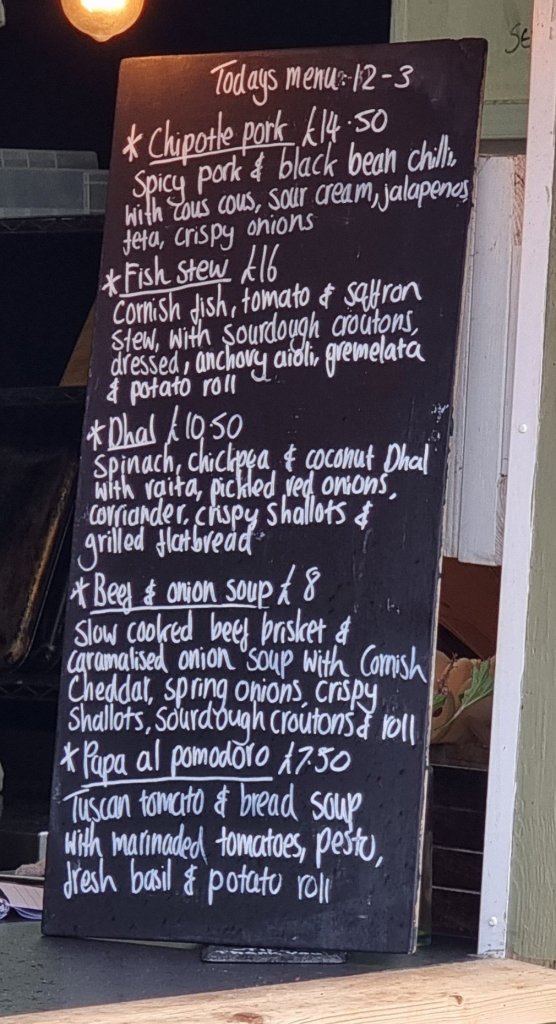 Se
Todays menu 12-3
* Chipotle pork £14.50
Spicy pork & black bean chilli,
with cous cous, sour cream, jalapenos,
feta, crispy onions
* Fish stew £16
Cornish fish, tomato & saffron
stew, with sourdough croutons,
dressed, anchovy aioli, gremelata
& potato roll
* Dhal £10.50
Spinach, chickpea & coconut Dhal
with raita, pickled red onions,
corriander, crispy shallots &
grilled flatbread
* Beef & onion soup £8
Slow cooked beef brisket &
caramalised onion soup with Cornish
Cheddar, spring onions, crispy
shallots, sourdough croutons & roll
* Papa al pomodoro £7.50
Tuscan tomato & bread soup
with marinaded tomatoes, pesto,
fresh basil & potato roll